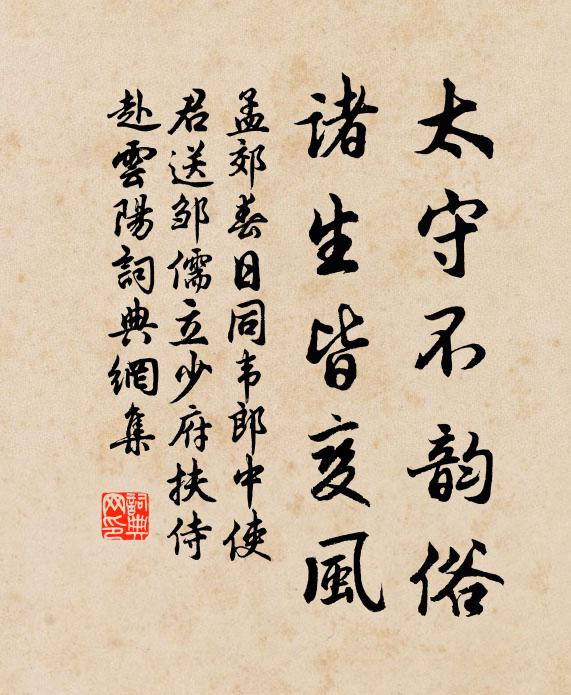 太守不韵俗
諸生皆变風
孟郊春日同韦郎中使
君送邹儒立少府扶侍
赴雲陽詞典網集
詞典网印